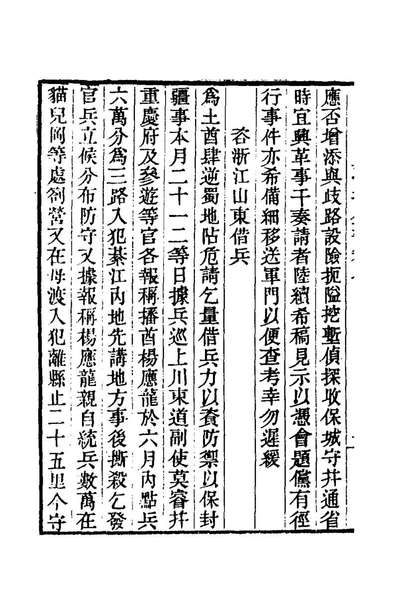 應否增添與歧路設險扼隘挖塹偵探收保城守并通省
時宜興革事干奏請者陸續希稿見示以憑會題儻有徑
行事件亦希備細移送軍門以便查考幸勿遲緩
咨浙江山東借兵
爲土酋肆逆蜀地阽危請乞量借兵力以資防禦以保封
疆事本月二十一二等日據兵巡上川東道副使莫睿并
重慶府及參遊等官各報稱播酋楊應龍於六月內點兵
六萬分爲三路入犯綦江內地先講地方事後撕殺乞發
官兵立候分布防守又據報稱楊應龍親自統兵數萬在
貓兒岡等處劄營又在母渡入犯離縣止二十五里今守